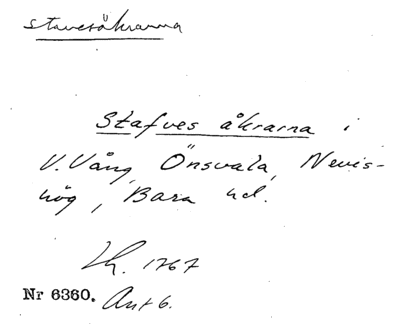 stavesåkrarna
Stafves åkrarna i
V. Vång, Önsvala, Nevis-
hög, Bara hd.
Lh. 1767
Nr 6360. Ant 6.